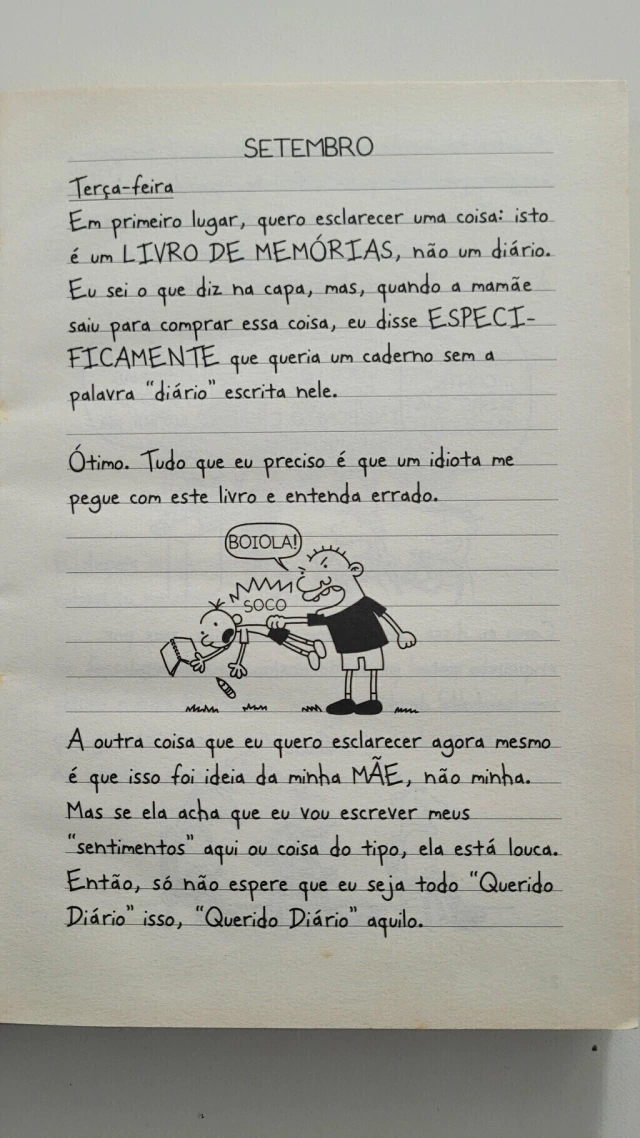 SETEMBRO
Terça-feira
Em primeiro lugar, quero esclarecer uma coisa: isto
é um LIVRO DE MEMÓRIAS, não um diário.
Eu sei o que diz na capa, mas, quando a mamãe
saiu para comprar essa coisa, eu disse ESPECI-
FICAMENTE que queria um caderno sem a
palavra "diário" escrita nele.
Ótimo. Tudo que eu preciso é que um idiota me
pegue com este livro e entenda errado.
BOIOLA!
SOCO
A outra coisa que eu quero esclarecer agora mesmo
é que isso foi ideia da minha MÃE, não minha.
Mas se ela acha que eu vou escrever meus
"sentimentos" aqui ou coisa do tipo, ela está louca.
Então, só não espere que eu seja todo "Querido
Diário" isso, "Querido Diário" aquilo.